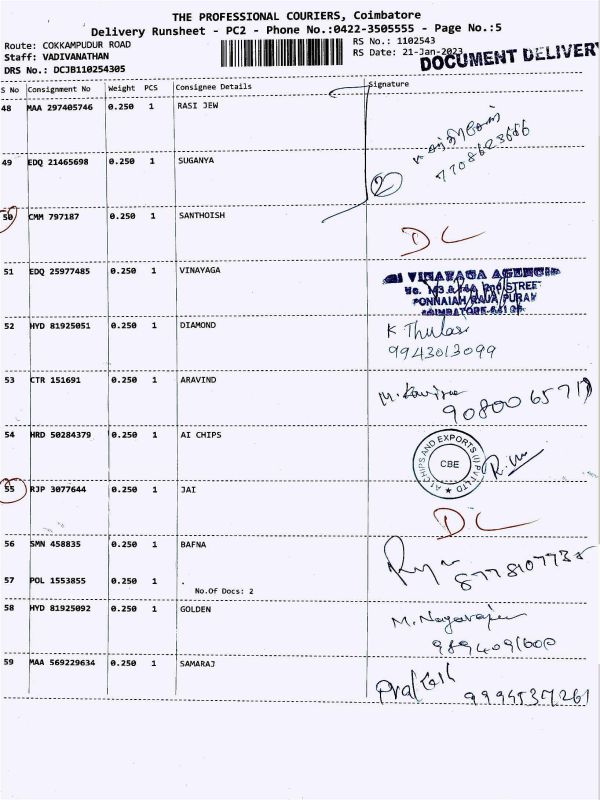 THE PROFESSIONAL COURIERS, Coimbatore
Delivery Runsheet - PC2 - Phone No.:0422-3505555 - Page No.:5
Route: COKKAMPUDUR ROAD
RS No.: 1102543
Staff: VADIVANATHAN
RS Date: 21-Jan-2023
DOCUMENT DELIVERY
DRS No.: DCJB110254305
S No Consignment No Weight PCS Consignee Details Signature
48 MAA 297405746 0.250 1 RASI JEW
7708623666
49 EDQ 21465698 0.250 1 SUGANYA
2
50 CMM 797187 0.250 1 SANTHOISH
DC
51 EDQ 25977485 0.250 1 VINAYAGA
VINAYAGA AGENCIE
2nd STREET
PONNAIAH RAJA PURAM
52 HYD 81925051 0.250 1 DIAMOND
K Thulasi
9943013099
53 CTR 151691 0.250 1 ARAVIND
54 HRD 50284379 0.250 1 AI CHIPS
A1 CHIPS AND EXPORTS (I) PVT LTD
CBE
55 RJP 3077644 0.250 1 JAI
DC
56 SMN 458835 0.250 1 BAFNA
8778107738
57 POL 1553855 0.250 1
No.Of Docs: 2
58 HYD 81925092 0.250 1 GOLDEN
M. Nagaraj
9894091600
59 MAA 569229634 0.250 1 SAMARAJ
Prakash
9994537261